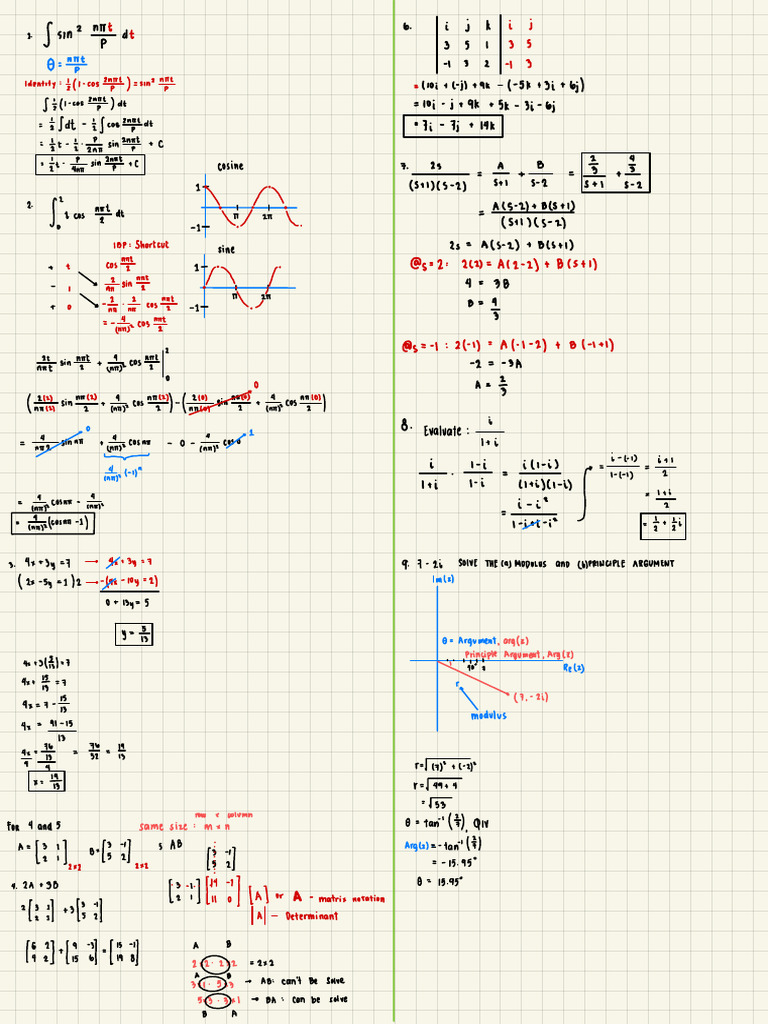 1. ∫ sin² nπt/p dt
θ = nπt/p
Identity: ½(1 - cos 2nπt/p) = sin² nπt/p
∫ ½(1 - cos 2nπt/p) dt
= ½∫dt - ½∫cos 2nπt/p dt
= ½t - ½ · p/2nπ sin 2nπt/p + C
= ½t - p/4nπ sin 2nπt/p + C
cosine
1
-1
π
2π
2. ∫₀² t cos nπt/2 dt
sine
1
-1
π
2π
IBP: Shortcut
+ t cos nπt/2
- 1 2/nπ sin nπt/2
+ 0 -2/nπ · 2/nπ cos nπt/2
= -4/(nπ)² cos nπt/2
2t/nπ sin nπt/2 + 4/(nπ)² cos nπt/2 |₀²
(2(2)/nπ sin nπ(2)/2 + 4/(nπ)² cos nπ(2)/2) - (2(0)/nπ(0) sin nπ(0)/2 + 4/(nπ)² cos nπ(0)/2)
0
= 4/nπ2 sin nπ + 4/(nπ)² cos nπ - 0 - 4/(nπ)² cos 0
0
1
4/(nπ)² (-1)ⁿ
= 4/(nπ)² cos nπ - 4/(nπ)²
= 4/(nπ)² (cos nπ - 1)
3. 4x + 3y = 7 → 4x + 3y = 7
(2x - 5y = 1)2 → -(4x - 10y = 2)
0 + 13y = 5
y = 5/13
4x + 3(5/13) = 7
4x + 15/13 = 7
4x = 7 - 15/13
4x = 91 - 15/13
4x/4 = 76/13/4 = 76/52 = 19/13
x = 19/13
For 4 and 5
same size: m × n
row × column
A = [3 1; 2 1] 2×2
B = [3 -1; 5 2] 2×2
5 AB
[3 -1; 5 2]
4. 2A + 3B
[3 -1; 2 1] [14 -1; 11 0]
[A] or A - matrix notation
|A| - Determinant
[6 2; 4 2] + [9 -3; 15 6] = [15 -1; 19 8]
A B
2 × 2 · 2 × 2 = 2×2
A B
3 × 1 · 5 × 3 → AB: can't Be solve
5 × 3 · 3 × 1 → BA: Can be solve
B A
6. | i j k | i j
3 5 1 | 3 5
-1 3 2 | -1 3
= (10i + (-j) + 9k - (-5k + 3i + 6j)
= 10i - j + 9k + 5k - 3i - 6j
= 7i - 7j + 14k
7. 2s/(s+1)(s-2) = A/s+1 + B/s-2 = 2/3/s+1 + 4/3/s-2
= A(s-2) + B(s+1)/(s+1)(s-2)
2s = A(s-2) + B(s+1)
@s = 2: 2(2) = A(2-2) + B(s+1)
4 = 3B
B = 4/3
@s = -1: 2(-1) = A(-1-2) + B(-1+1)
-2 = -3A
A = 2/3
8. Evaluate: i/1+i
i/1+i · 1-i/1-i = i(1-i)/(1+i)(1-i)
= i - i²/1 - i + i - i²
= i-(-1)/1-(-1) = i+1/2
= 1+i/2
= ½ + ½i
9. 7 - 2i SOLVE THE (a) MODULUS AND (b) PRINCIPLE ARGUMENT
Im(z)
θ = Argument, arg(z)
Principle Argument, Arg(z)
Re(z)
r
(7, -2i)
modulus
r = √(7)² + (-2)²
r = √49 + 4
= √53
θ = tan⁻¹(2/7), QIV
Arg(z) = -tan⁻¹(2/7)
= -15.95°
θ = 15.95°